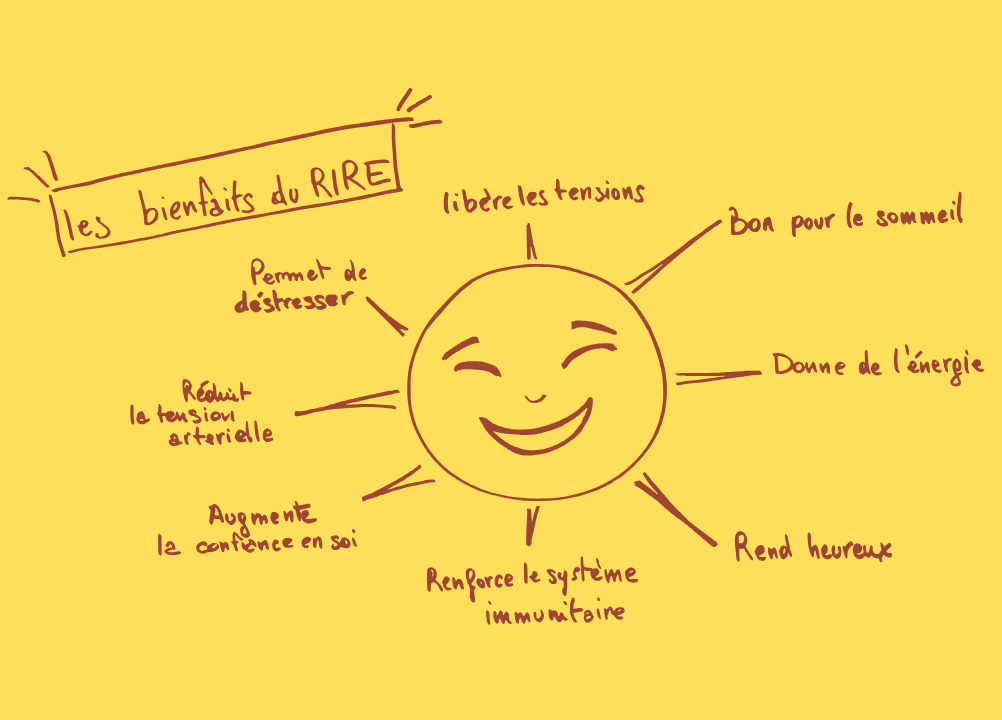 les bienfaits du RIRE
libère les tensions
Bon pour le sommeil
Donne de l'énergie
Rend heureux
Renforce le système
immunitaire
Augmente
la confiance en soi
Réduit
la tension
arterielle
Permet de
déstresser